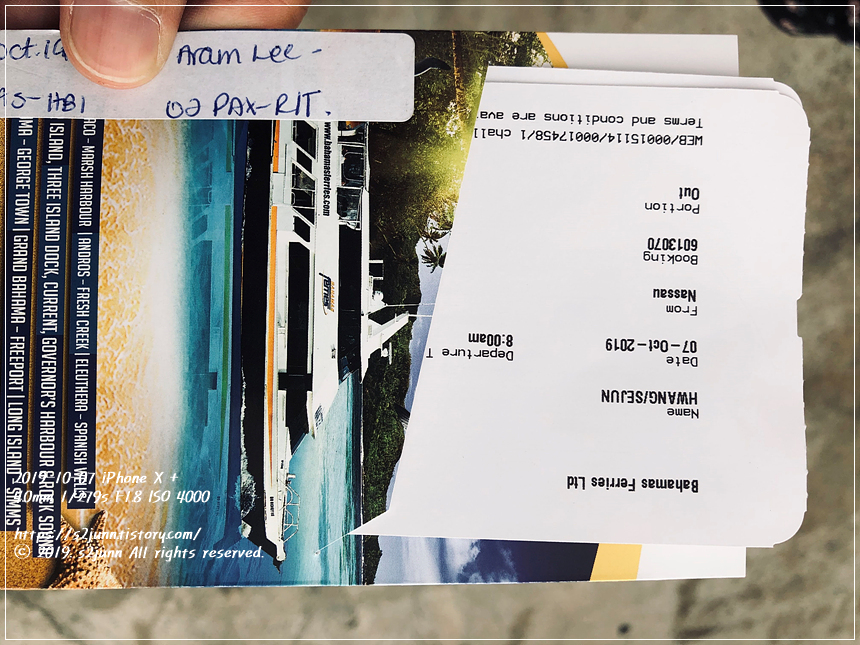 Oct.19
Aram Lee -
95-HBI
02 PAX-R/T.
Bahamas Ferries Ltd
Name
HWANG/SEJUN
Date
07-Oct-2019
Departure T
8:00am
From
Nassau
Booking
6013070
Portion
Out
WEB/00015114/00017458/1 chall
Terms and conditions are avai
www.bahamasferries.com
BAHAMAS
Ferries
ACO - MARSH HARBOUR | ANDROS - FRESH CREEK | ELEUTHERA - SPANISH WELLS
ISLAND, THREE ISLAND DOCK, CURRENT, GOVERNOR'S HARBOUR
MA - GEORGE TOWN | GRAND BAHAMA - FREEPORT | LONG ISLAND - SIMMS
2019-10-07 iPhone X +
1/279s F1.8 ISO 4000
https://s2junn.tistory.com/
© 2019. s2junn All rights reserved.